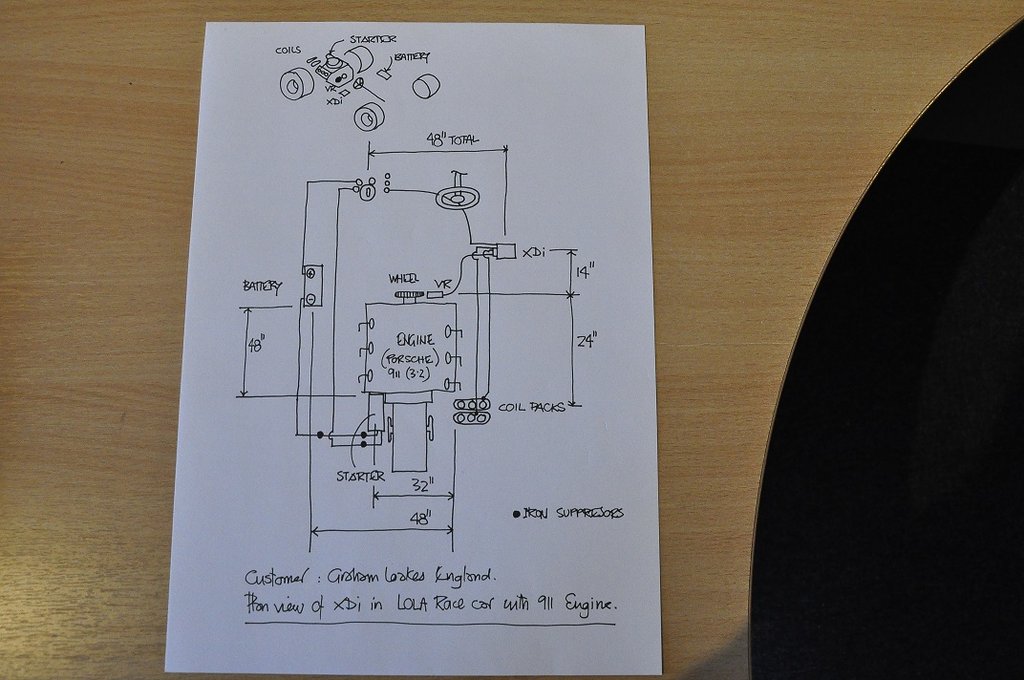 STARTER
COILS
BATTERY
VR
XDi
48" TOTAL
XDi
14"
WHEEL
VR
BATTERY
48"
ENGINE
(PORSCHE)
911 (3·2)
24"
COIL PACKS
STARTER
32"
48"
IRON SUPPRESORS
Customer : Graham Lookes England.
Plan view of XDi in LOLA Race car with 911 Engine.